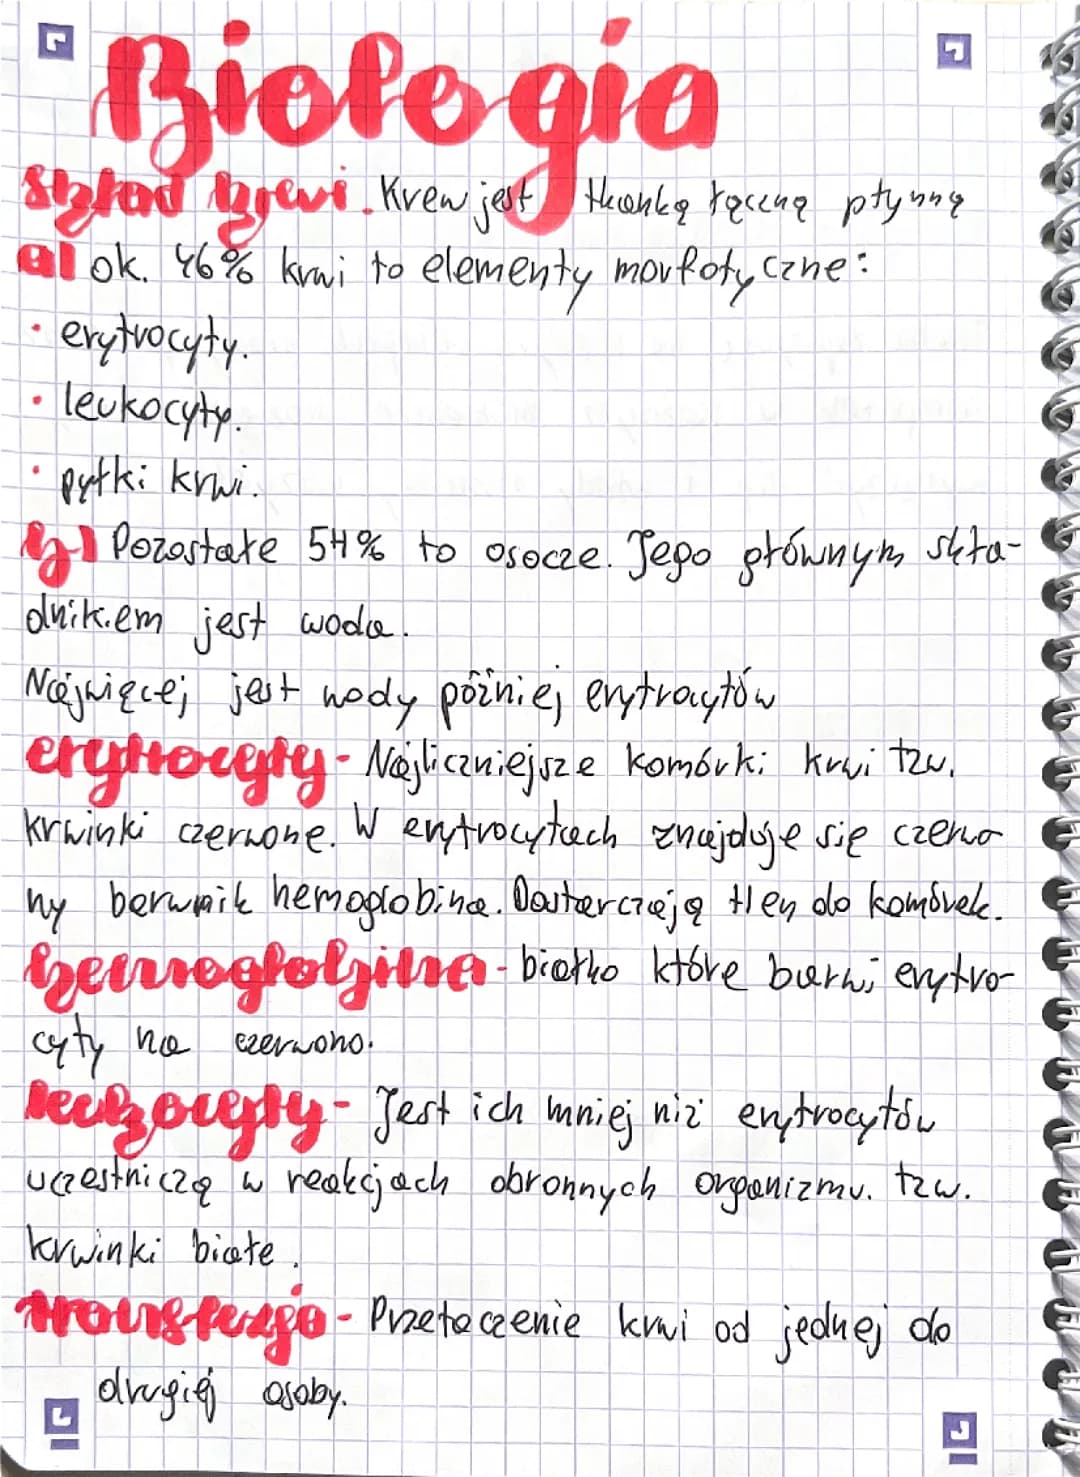 Biologia
Skład krwi. Krew jest tkanką łączną płynną
a) ok. 46% krwi to elementy morfotyczne:
• erytrocyty.
• leukocyty.
• pytki krwi.
b) Pozostałe 54% to osocze. Jego głównym skła-
dnikiem jest woda.
Najwięcej jest wody później erytrocytów
erytrocyty - Najliczniejsze komórki krwi tzw.
krwinki czerwone. W erytrocytach znajduje się czerwo
ny barwnik hemoglobina. Dostarczają tlen do komórek.
hemoglobina - białko które barwi erytro-
cyty na czerwono.
leukocyty - Jest ich mniej niż erytrocytów
uczestniczą w reakcjach obronnych organizmu. tzw.
krwinki białe.
transfuzja - Przetaczenie krwi od jednej do
drugiej osoby.